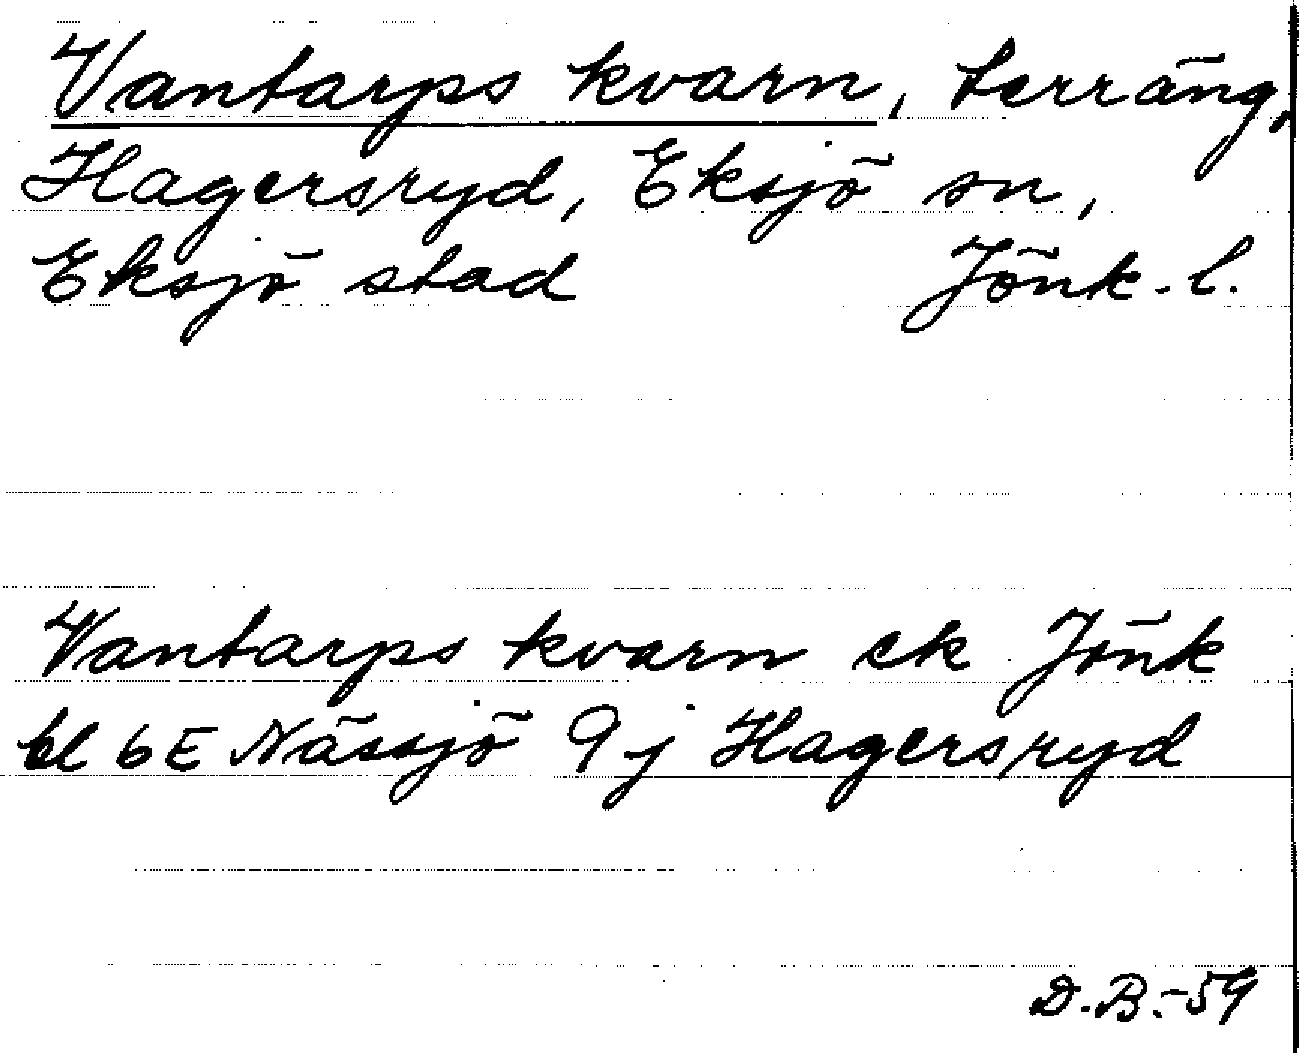 Vantarps kvarn, terräng,
Hagersryd, Eksjö sn,
Eksjö stad Jönk. l.
Vantarps kvarn ek Jönk
bl 6E Nässjö 9j Hagersryd
D.B.-59